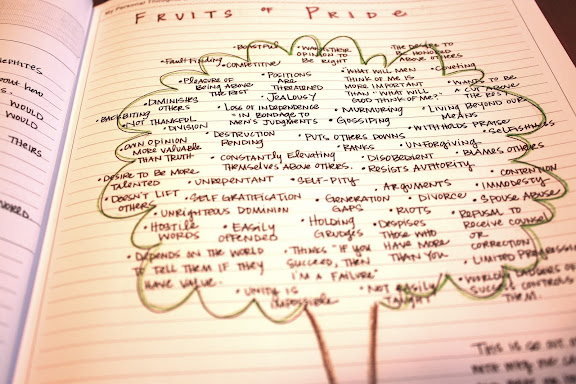 My Personal Thoughts
FRUITS OF PRIDE
• Boastful • Wants their opinion to be right • The desire to be honored above others
• Fault Finding • Competitive • Positions are threatened • What will men think of me is more important than "What will God think of me?" • Coveting
• Pleasure of being above the rest • Jealousy • Wants to be a cut above the rest
• Diminishes others • Loss of independence "in bondage to men's judgments" • Murmuring • Living beyond our means
• Backbiting • Not thankful • Gossiping • Withholds praise
• Division • Destruction pending • Puts others down • Selfishness
• Own opinion more valuable than truth • Ranks • Unforgiving • Blames others
• Constantly elevating themselves above others. • Disobedient
• Desire to be more talented • Unrepentant • Self-pity • Resists authority • Contention
• Doesn't lift others • Self gratification • Generation gaps • Arguments • Divorce • Immodesty
• Spouse abuse
• Unrighteous dominion • Riots • Refusal to receive counsel or correction
• Hostile words • Easily offended • Holding grudges • Despises those who have more than you
• Depends on the world to tell them if they have value. • Things "if you succeed, then I'm a failure" • Limited
• Unity is impossible • Not easily taught success controls them.
This is
EPHITES
WOULD
WOULD
THEIRS
WORLD.